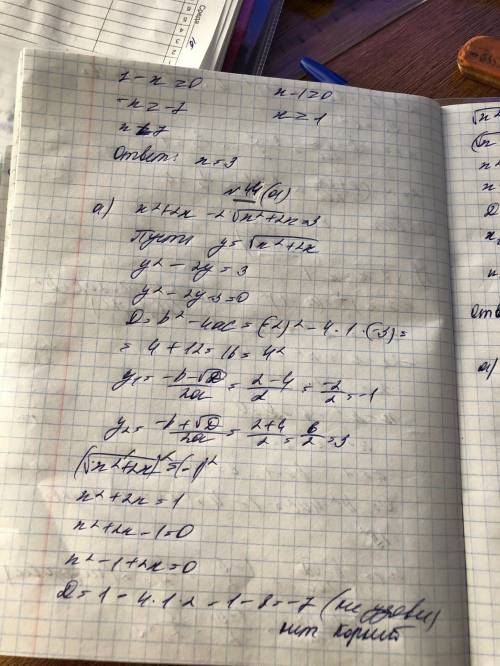 7 - x ≥ 0
x - 1 ≥ 0
-x ≥ -7
x ≥ 1
x ≤ 7
Ответ: x = 3
№ 44(а)
а) x² + 2x - 2√x² + 2x = 3
Пусть y = √x² + 2x
y² - 2y = 3
y² - 2y - 3 = 0
D = b² - 4ac = (-2)² - 4 · 1 · (-3) =
= 4 + 12 = 16 = 4²
y₁ = -b - √D / 2a = 2 - 4 / 2 = -2 / 2 = -1
y₂ = -b + √D / 2a = 2 + 4 / 2 = 6 / 2 = 3
(√x² + 2x)² = (-1)²
x² + 2x = 1
x² + 2x - 1 = 0
x² - 1 + 2x = 0
D = 1 - 4 · 1 · 2 = 1 - 8 = -7 (не
нет корней
Отв
а)